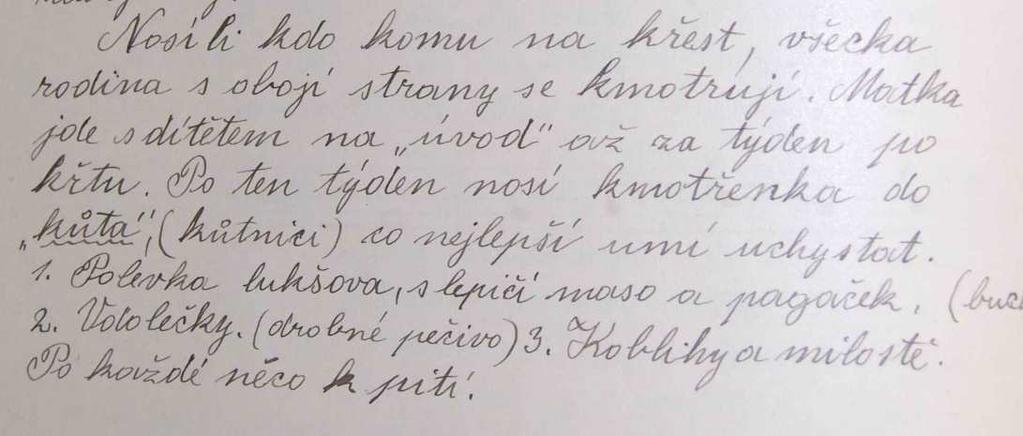 Nosí li kdo komu na křest, všecka
rodina s obojí strany se kmotrují. Matka
jde s dítětem na „úvod" až za týden po
křtu. Po ten týden nosí kmotřenka do
„kůta", (kůtnici) co nejlepší umí uchystat.
1. Polevka lukšova, slepičí maso a pagaček. (
2. Vdolečky. (drobné pečivo) 3. Koblihy a milostě.
Po každé něco k pití.